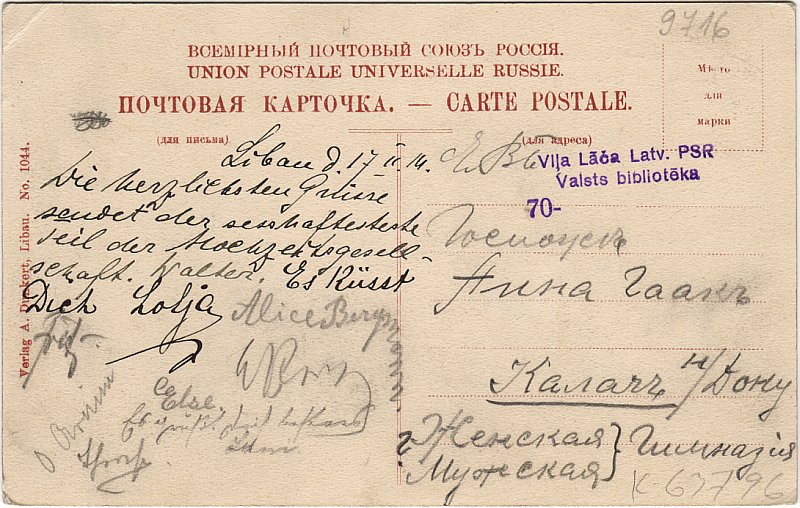 9716
ВСЕМІРНЫЙ ПОЧТОВЫЙ СОЮЗЪ РОССІЯ.
UNION POSTALE UNIVERSELLE RUSSIE.
ПОЧТОВАЯ КАРТОЧКА. — CARTE POSTALE.
Мѣсто
для
марки
(для письма)
(для адреса)
Libau d. 17 II 14.
Die herzlichsten Grüsse
sendet der sesshafteste
Teil der Hochzeitsgesell-
schaft. Walter. Es Küsst
Dich Lolja
Alice Berg
Else
Es grüßt
Verlag A. Dinkert, Libau. No. 1044.
Е В Б
Viļa Lāča Latv. PSR
Valsts bibliotēka
70-
Госпожѣ
Анна Гаакъ
Калачъ н/Дону
? Женская } Гимназія
Мужская
K-63796